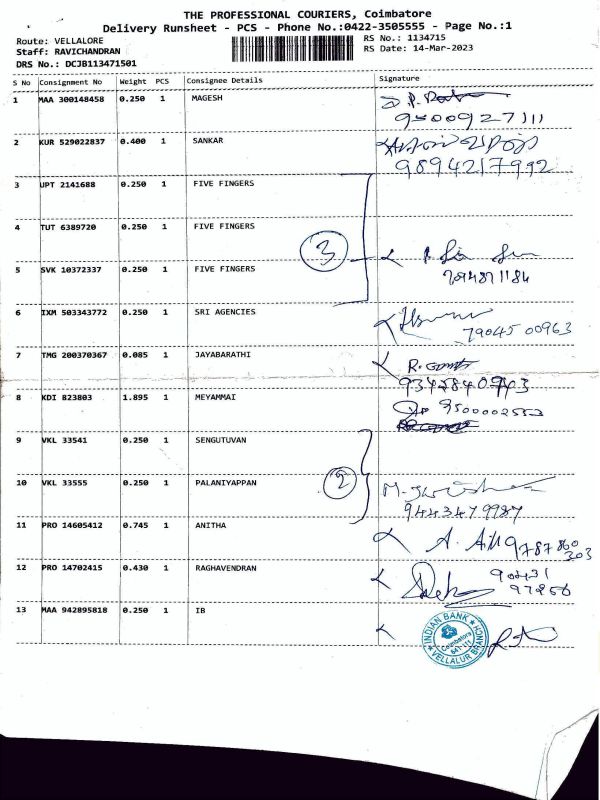 THE PROFESSIONAL COURIERS, Coimbatore
Delivery Runsheet - PCS - Phone No.:0422-3505555 - Page No.:1
Route: VELLALORE
Staff: RAVICHANDRAN
DRS No.: DCJB113471501
RS No.: 1134715
RS Date: 14-Mar-2023
S No Consignment No Weight PCS Consignee Details Signature
1 MAA 300148458 0.250 1 MAGESH
9500927111
2 KUR 529022837 0.400 1 SANKAR
9894217992
3 UPT 2141688 0.250 1 FIVE FINGERS
4 TUT 6389720 0.250 1 FIVE FINGERS
3
5 SVK 10372337 0.250 1 FIVE FINGERS
6 IXM 503343772 0.250 1 SRI AGENCIES
79045 00963
7 TMG 200370367 0.085 1 JAYABARATHI
8 KDI 823803 1.895 1 MEYAMMAI
9 VKL 33541 0.250 1 SENGUTUVAN
10 VKL 33555 0.250 1 PALANIYAPPAN
2
9443479987
11 PRO 14605412 0.745 1 ANITHA
9787860
303
12 PRO 14702415 0.430 1 RAGHAVENDRAN
13 MAA 942895818 0.250 1 IB
INDIAN BANK
Coimbatore
641-111
VELLALUR BRANCH